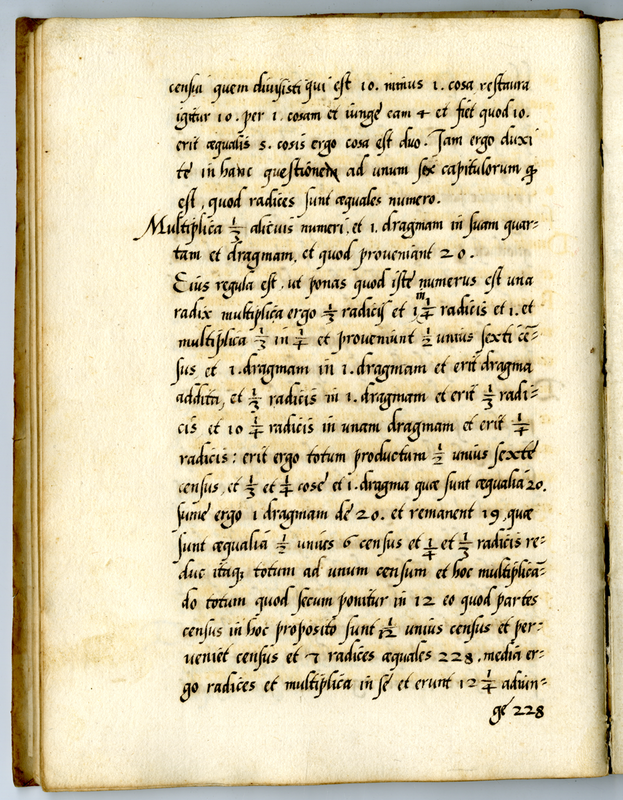 censui quem divisisti qui est 10. minus 1. cosa restaura
igitur 10. per 1. cosam et iunge eam 4 et fiet quod 10.
erit æqualis 5. cosis ergo cosa est duo. Iam ergo duxi
te in hanc questionem ad unum sex capitulorum ꝙ
est, quod radices sunt æquales numero.
Multiplica 1/3 alicuis numeri, et 1. dragmam in suam quar-
tam et dragmam, et quod proveniant 20.
Eius regula est, ut ponas quod iste numerus est una
radix multiplica ergo 1/3 radicis et 1 in 1/4 radicis et 1. et
multiplica 1/3 in 1/4 et proveniunt 1/2 unius sexti cē-
sus, et 1. dragmam in 1. dragmam et erit dragma
additi, et 1/3 radicis in 1. dragmam et erit 1/3 radi-
cis et 10 1/4 radicis in unam dragmam et erit 1/4
radicis: erit ergo totum productum 1/2 unius sexte
census, et 1/3 et 1/4 cose et 1. dragma quæ sunt æqualia 20.
sume ergo 1 dragmam de 20. et remanent 19, quæ
sunt æqualia 1/2 unius 6 census et 1/4 et 1/3 radicis re-
duc itaqꝫ totum ad unum censum et hoc multiplicā-
do totum quod secum ponitur in 12 eo quod partes
census in hoc proposito sunt 1/12 unius census et per-
veniet census et 7 radices æquales 228. media er-
go radices et multiplica in se et erunt 12 1/4 adiun-
ge 228